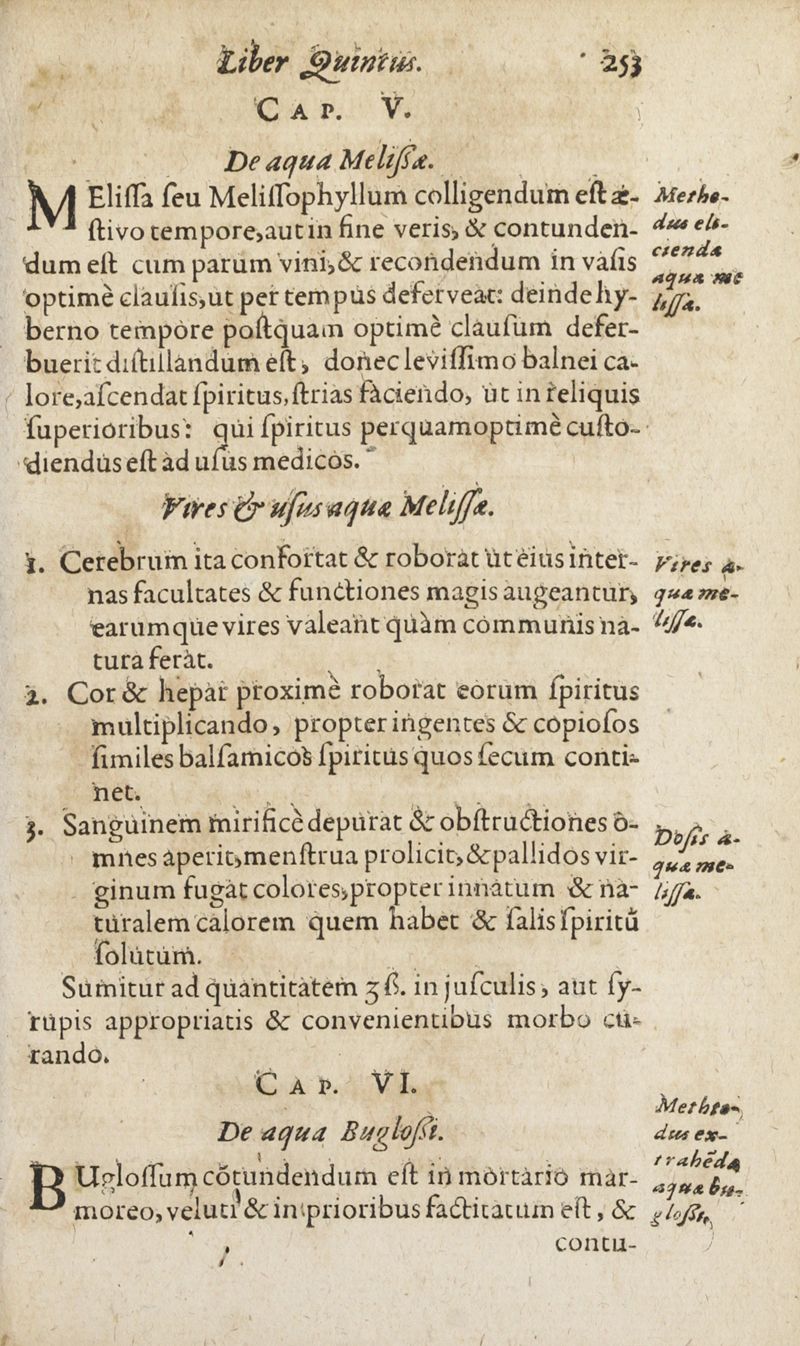 Liber Quintus. 253
CAP. V.
De aqua Melißæ.
MEliſſa ſeu Meliſſophyllum colligendum eſt æ-
ſtivo tempore, aut in fine veris, & contunden-
dum eſt cum parum vini, & recondendum in vaſis
optimè clauſis, ut per tempus deferveat: deinde hy-
berno tempore poſtquam optimè clauſum defer-
buerit diſtillandum eſt, donec leviſſimo balnei ca-
lore, aſcendat ſpiritus, ſtrias faciendo, ut in reliquis
ſuperioribus: qui ſpiritus perquamoptimè cuſto-
diendus eſt ad uſus medicos.
Methe-
dus eli-
cienda
aqua me
liſſæ.
Vires & uſus aquæ Meliſſæ.
1. Cerebrum ita confortat & roborat ut eius inter-
nas facultates & functiones magis augeantur,
earumque vires valeant quàm communis na-
tura ferat.
Vires a-
quæ me-
liſſæ.
2. Cor & hepar proximè roborat eorum ſpiritus
multiplicando, propter ingentes & copioſos
ſimiles balſamicos ſpiritus quos ſecum conti-
net.
3. Sanguinem mirificè depurat & obſtructiones o-
mnes aperit, menſtrua prolicit, & pallidos vir-
ginum fugat colores, propter innatum & na-
turalem calorem quem habet & ſalis ſpiritū
ſolutum.
Doſis a-
quæ me-
liſſæ.
Sumitur ad quantitatem ʒß. in juſculis, aut ſy-
rupis appropriatis & convenientibus morbo cu-
rando.
CAP. VI.
De aqua Bugloßi.
BUgloſſum cōtundendum eſt in mortario mar-
moreo, veluti & in prioribus factitatum eſt, &
Metho-
dus ex-
trahēda
aqua bu-
gloßi,
contu-